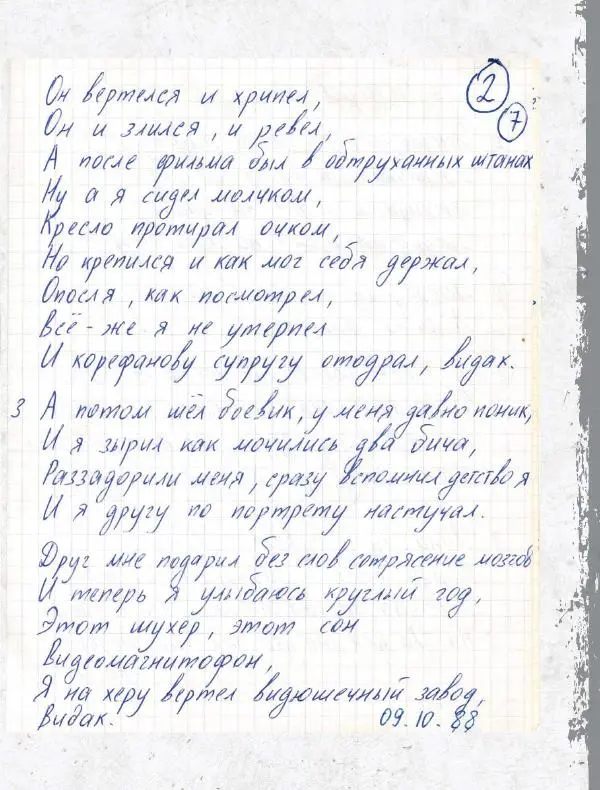 2
7
Он вертелся и хрипел,
Он и злился, и ревел,
А после фильма был в обтруханных штанах
Ну а я сидел молчком,
Кресло протирал очком,
Но крепился и как мог себя держал,
Опосля, как посмотрел,
Всё-же я не утерпел
И корефанову супругу отодрал, видак.
3 А потом шёл боевик, у меня давно поник,
И я зырил как мочились два бича,
Раззадорили меня, сразу вспомнил детство я
И я другу по портрету настучал.
Друг мне подарил без слов сотрясение мозгов
И теперь я улыбаюсь круглый год,
Этот шухер, этот сон
Видеомагнитофон,
Я на херу вертел видюшечный завод,
Видак. 09.10.88